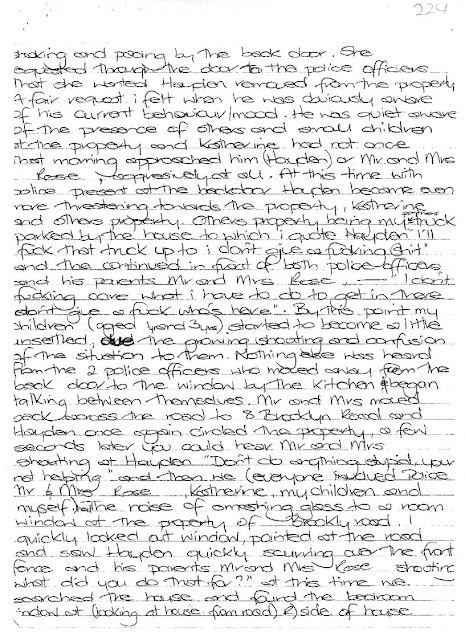 224
shaking and pacing by the back door. She
requested through the door to the police officers
that she wanted Hayden removed from the property
A fair request i felt when he was obviously aware
of his current behaviour/mood. He was quiet aware
of the presence of others and small children
at the property and Katherine had not once
that morning approached him (Hayden) or Mr and Mrs
Rose aggressively at all. At this time with
police present at the backdoor Hayden became even
more threatening towards the property, Katherine
and others property. Others property being my partners truck
parked by the house to which i quote Hayden "I'll
fuck that truck up to i don't give a fucking shit"
and the continued in front of both police officers
and his parents Mr and Mrs Rose, — "I don't
fucking care what i have to do to get in there
don't give a fuck who's here". By this point my
children (aged 4 and 3yrs) started to become a little
unsettled, due the growing shouting and confusion
of the situation to them. Nothing else was heard
from the 2 police officers who moved away from the
back door to the window by the kitchen & began
talking between themselves. Mr and Mrs moved
back across the road to 8 Brooklyn Road and
Hayden once again circled the property, a few
seconds later you could hear Mr and Mrs
shouting at Hayden "Don't do anything stupid, your
not helping" and then we (everyone involved Police
Mr & Mrs Rose, Katherine, my children and
myself) the noise of smashing glass to a room
window at the property of Brooklyn road. I
quickly looked out window, pointed at the road
and saw Hayden quickly scurrying over the front
fence and his parents Mr and Mrs Rose shouting
what did you do that for?" at this time we
searched the house and found the bedroom
window at (looking at house from road) R) side of house